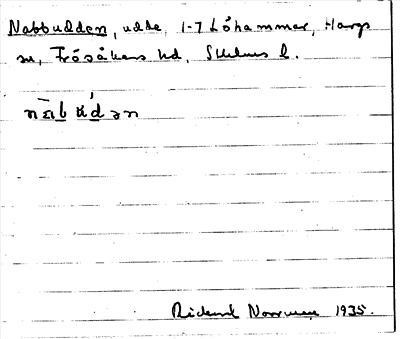 Nabbudden, udde, 1-7 Löhammar, Hargs
sn, Frösåkers hd, Sthlms l.
nā̀b ʉ́dən
Rickard Norrman 1935.